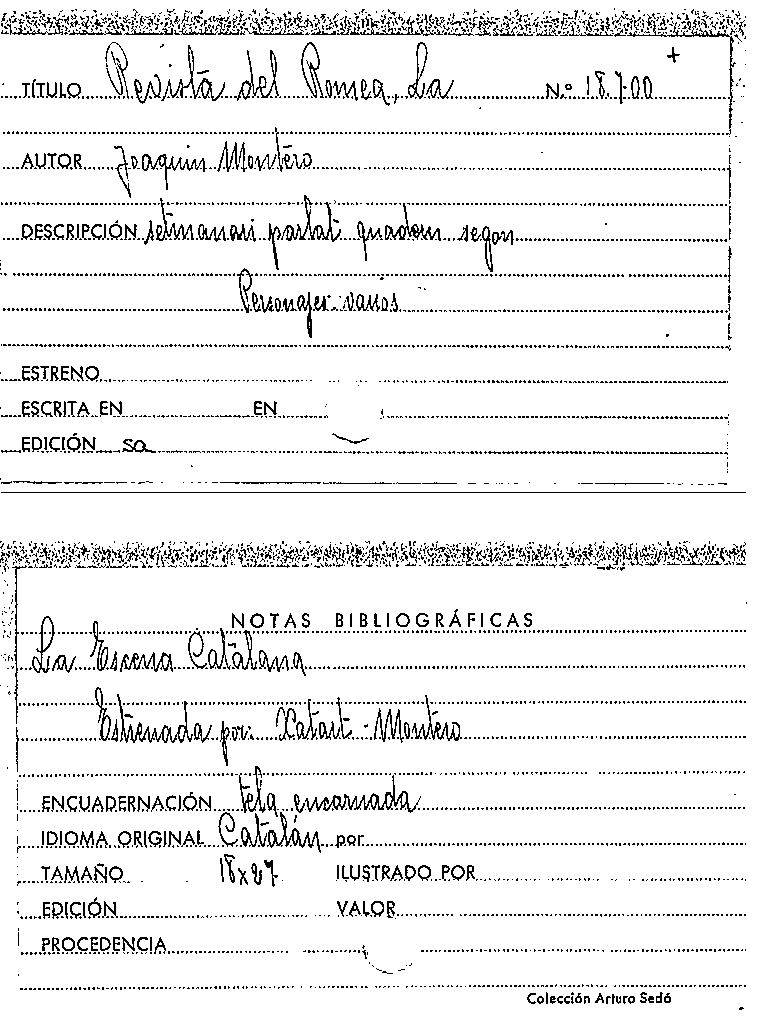 +
TÍTULO Revista del Romea, La N.º 18.7.00
AUTOR Joaquin Montero
DESCRIPCIÓN setmanari parlat quadern segon
Personajes varios
ESTRENO
ESCRITA EN EN
EDICIÓN sa
NOTAS BIBLIOGRÁFICAS
La Escena Catalana
Estrenada por: Xatart - Montero
ENCUADERNACIÓN tela encarnada
IDIOMA ORIGINAL Catalán por
TAMAÑO 18x27 ILUSTRADO POR
EDICIÓN VALOR
PROCEDENCIA
Colección Arturo Sedó